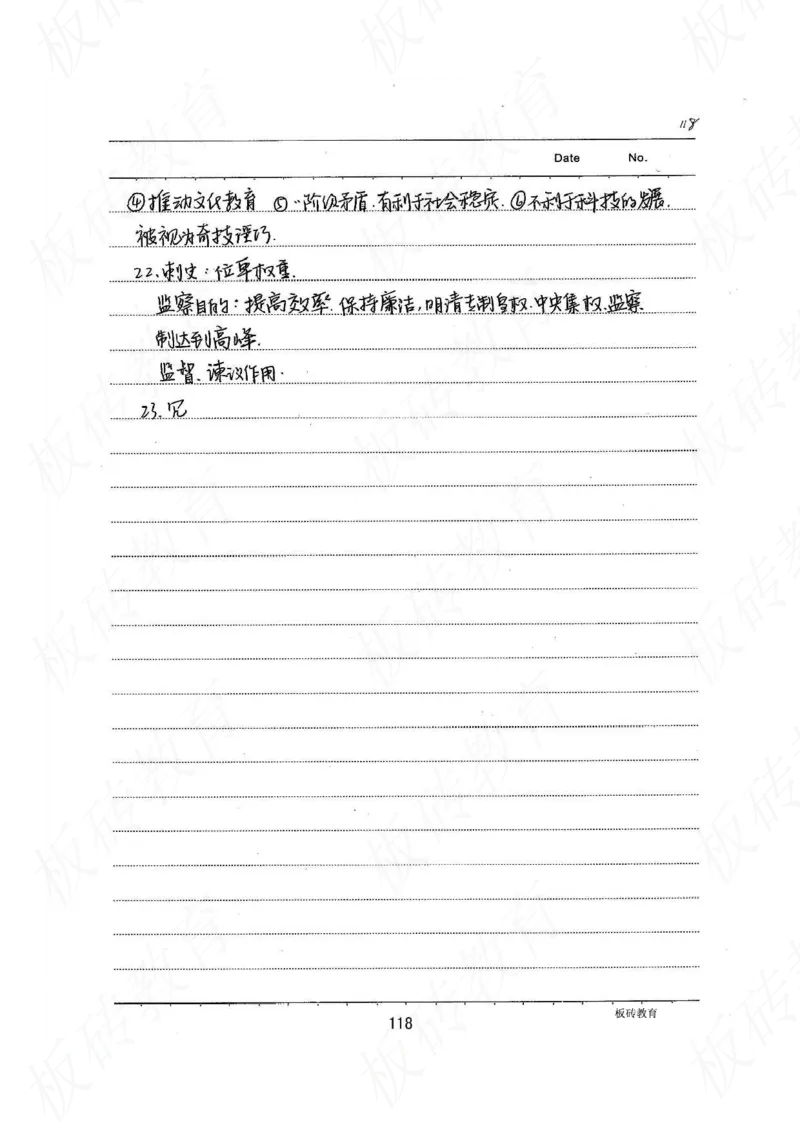 118
Date No.
④推动文化教育 ⑤"阶级矛盾.有利于社会稳定.⑥不利于科技的发展.
被视为奇技淫巧.
22.刺史:位卑权重.
监察目的:提高效率.保持廉洁,明清专制皇权.中央集权.监察
制达到高峰.
监督.谏议作用.
23.冗
118
板砖教育